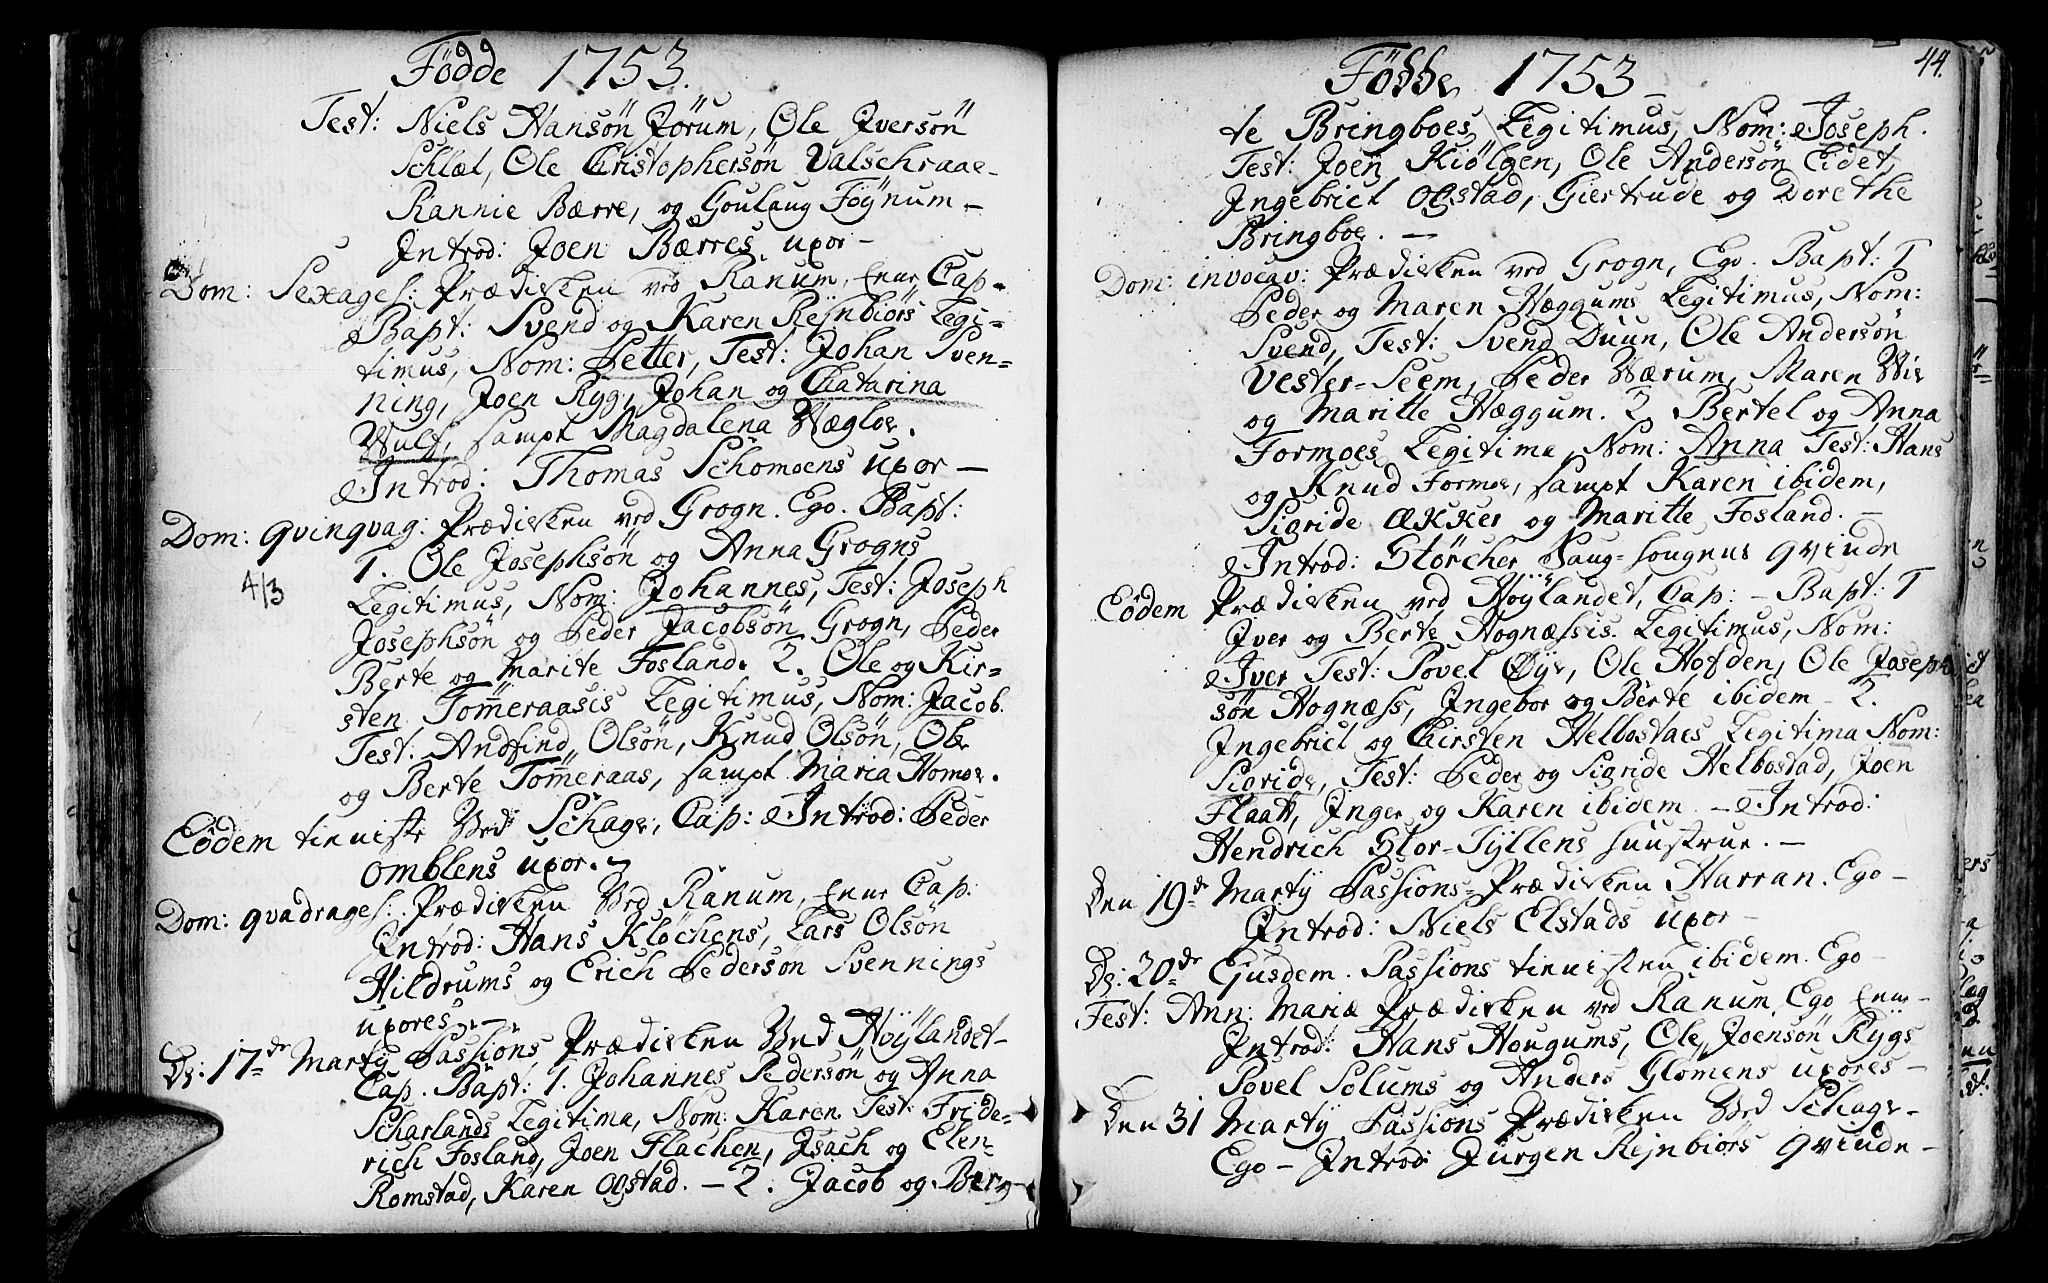 Fødde 1753.
Test: Niels Hansön Jörum, Ole Jversön
Schlæt, Ole Christophersön Valschraae
Rannie Bærre, og Goulaug Föÿnum –
Jntrod: Joen Bærres uxor –
Dom: Sexages: Prædiken ved Ranum, Cap.
Bapt: Svend og Karen Rejnbiörs Legi=
timus, Nom: Petter, Test: Johan Sven=
ning, Joen Ryg, Johan og Chatarina
Wulf, sampt Magdalena Wægloe.
Introd: Thomas Schomoens uxor –
Dom: qvinqvag: Prædiken ved Grogn. Ego. Bapt:
4/3
1. Ole Josephsön og Anna Grogns
Legitimus, Nom: Johannes, Test: Joseph
Josephsön og Peder Jacobsön Grogn, Peder
Berte og Marite Fosland. 2. Ole og Kir=
sten Tömeraasis Legitimus, Nom: Jacob.
Test: Andfind Olsön, Knud Olsön, Ole
og Berte Tömeraas, sampt Maria Homoe.
Eödem tieniste Ved Schage, Cap: Introd: Peder
Omblens uxor.
Dom: qvadrages: Prædiken Ved Ranum, Cap:
Jntrod: Hans Klöchens, Lars Olsön
Hildrums og Erich Pedersön Svennings
uxores. –
D: 17de Martÿ Passions Prædiken Ved Höÿlandet –
Cap. Bapt: 1. Johannes Pedersön og Anna
Scharlands Legitima, Nom: Karen Test: Fride=
rich Fosland, Joen Flachen, Jsach og Elen
Romstad, Karen Ogstad. – 2. Jacob og Ber=
44.
Fødde 1753
te Bringboes Legitimus, Nom: Joseph.
Test: Joen Kiölgen, Ole Andersön Eidet,
Jngebrict Ogstad, Giertrude og Dorethe
Bringboe. –
Dom: invocav: Prædiken ved Grogn, Ego. Bapt: 1
Peder og Maren Hæggums Legitimus, Nom:
Svend, Test: Svend Duun, Ole Andersön
Vester=Seem, Peder Værum, Maren Vie
og Maritte Hæggum. 2. Bertel og Anna
Formoes Legitima, Nom: Anna Test: Hans
og Knud Formoe, sampt Karen ibidem,
Sigride Ækker og Maritte Fosland. –
Introd: Störcher Haug=hougnus qvinde
Eödem Prædiken ved Höÿlandet, Cap: – Bapt: 1
Jver og Berte Hognæssis Legitimus, Nom:
Iver Test: Povel Øye, Ole Hofden, Ole Joseph
sön Hognæss, Jngebor og Berte ibidem – 2.
Jngebrict og Chirsten Helbostaes Legitima Nom:
Sigride, Test: Peder og Sigride Helbostad, Joen
Flaatt, Jnger og Karen ibidem – Introd:
Hendrich Stor=Tÿllens huustrue. –
Den 19de Martÿ Passions=Prædiken Harran. Ego –
Jntrod: Niels Elstads uxor –
D: 20de Ejusdem. Passions tienisten ibidem. Ego –
Fest: Ann: Mariæ Prædiken ved Ranum Ego
Jntrod: Hans Hougums, Ole Joensön Rÿgs
Povel Solums og Anders Glömens uxores –
Den 31 Martÿ Passions Prædiken Ved Schage –
Ego – Jntrod: Jürgen Rejnbiörs qvinde –